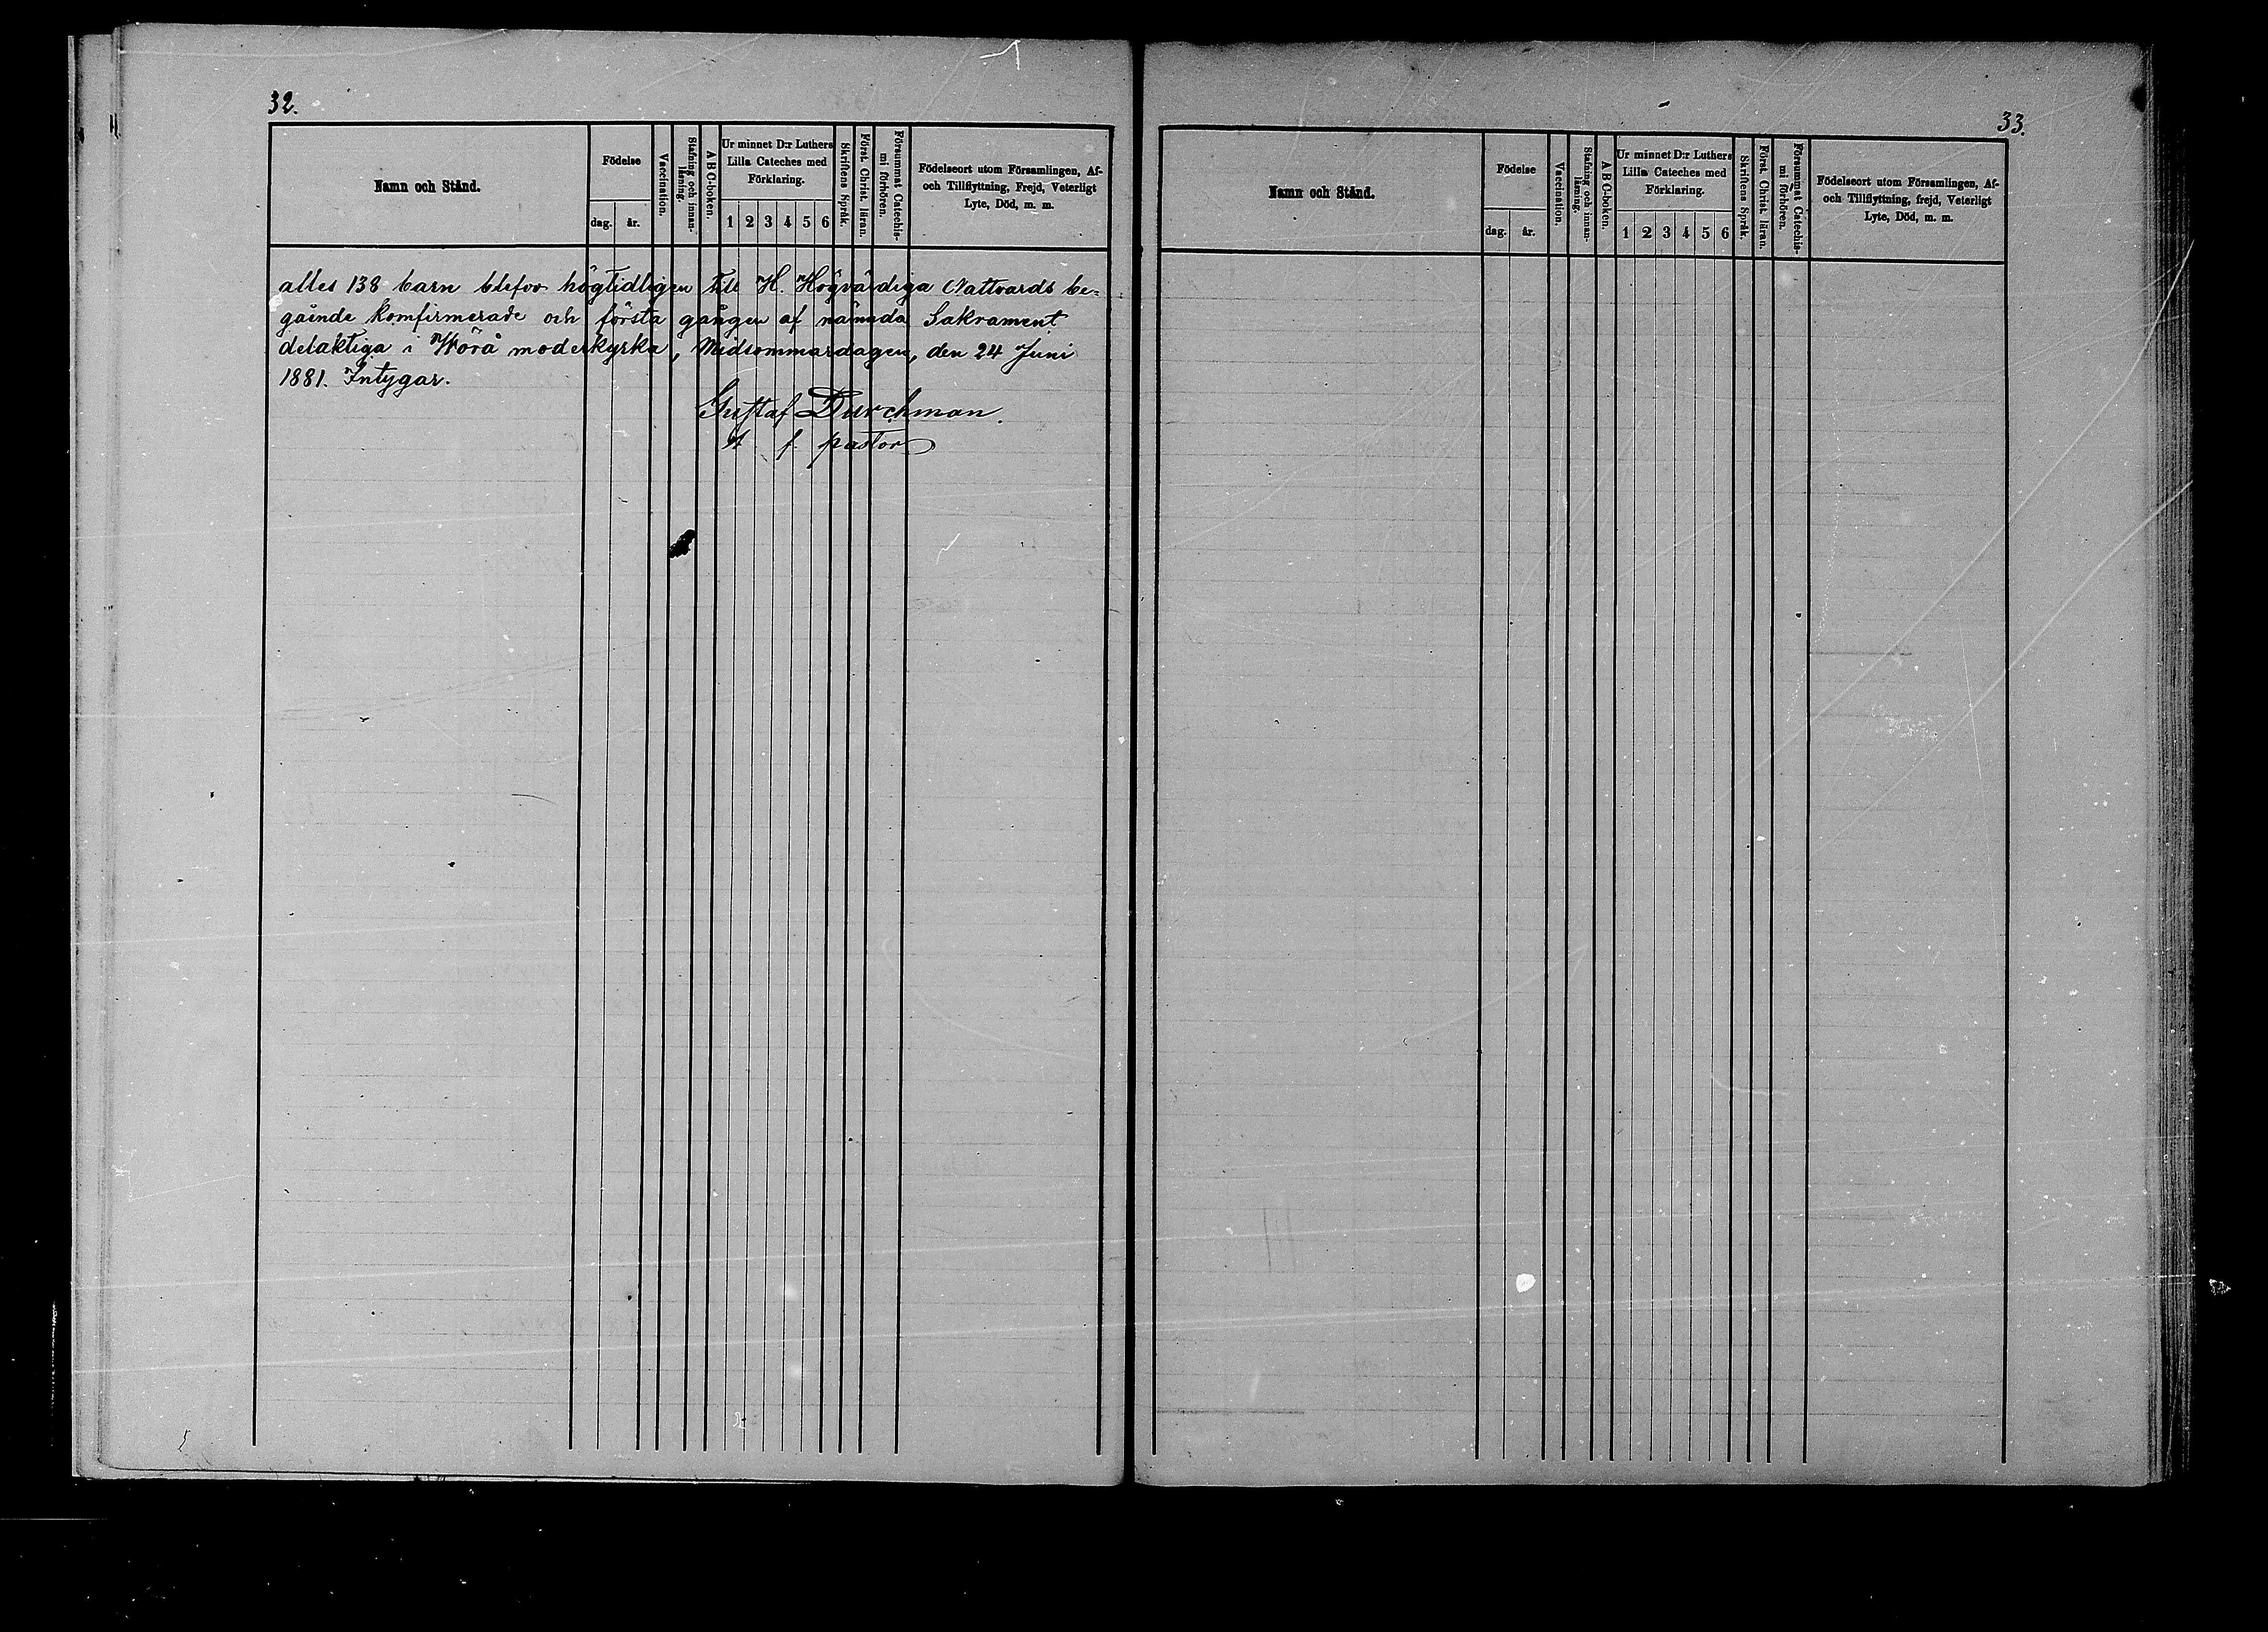 32.
Namn och Stånd.
Födelse
dag.
år.
Vaccination.
Stafning och innan-
läsning.
A B C-boken.
Ur minnet D:r Luthers
Lilla Cateches med
Förklaring.
1 2 3 4 5 6
Skriftens Språk.
Först. Christ. läran.
Försummat Catechis-
mi förhören.
Födelseort utom Församlingen, Af-
och Tillflyttning, Frejd, Veterligt
Lyte, Död, m. m.
alles 138 barn blefvo högtidligen till H. Högvärdiga Nattvards be-
gående komfirmerade och första gången af nämnda Sakrament
delaktiga i Wörå moderkyrka, Midsommardagen, den 24 Juni
1881. Intygar.
Gustaf Durchman.
t. f. pastor
33.
Namn och Stånd.
Födelse
dag.
år.
Vaccination.
Stafning och innan-
läsning.
A B C-boken.
Ur minnet D:r Luthers
Lilla Cateches med
Förklaring.
1 2 3 4 5 6
Skriftens Språk.
Först. Christ. läran.
Försummat Catechis-
mi förhören.
Födelseort utom Församlingen, Af-
och Tillflyttning, frejd, Veterligt
Lyte, Död, m. m.